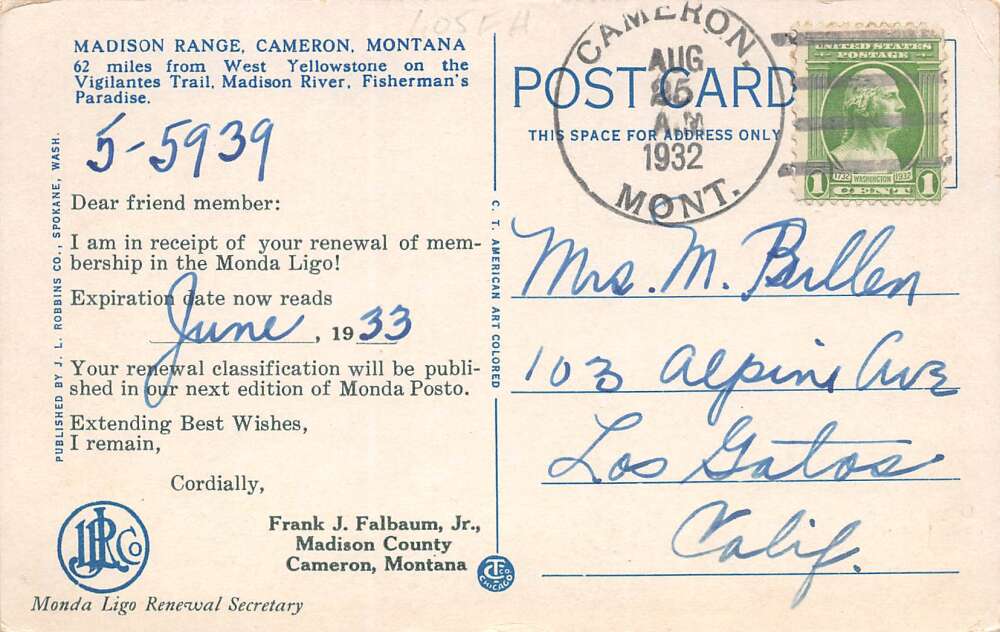 MADISON RANGE, CAMERON, MONTANA
62 miles from West Yellowstone on the
Vigilantes Trail, Madison River, Fisherman's
Paradise.
5-5939
Dear friend member:
I am in receipt of your renewal of mem-
bership in the Monda Ligo!
Expiration date now reads
June, 1933
Your renewal classification will be publi-
shed in our next edition of Monda Posto.
Extending Best Wishes,
I remain,
Cordially,
Frank J. Falbaum, Jr.,
Madison County
Cameron, Montana
Monda Ligo Renewal Secretary
PUBLISHED BY J. L. ROBBINS CO., SPOKANE, WASH.
JLR Co
C. T. AMERICAN ART COLORED
CT CO. CHICAGO
POST CARD
THIS SPACE FOR ADDRESS ONLY
CAMERON,
AUG
25
A.M
1932
MONT.
UNITED STATES
POSTAGE
1732 WASHINGTON 1932
1 CENT 1
Mrs. M. Bullen
103 Alpine Ave
Los Gatos
Calif.